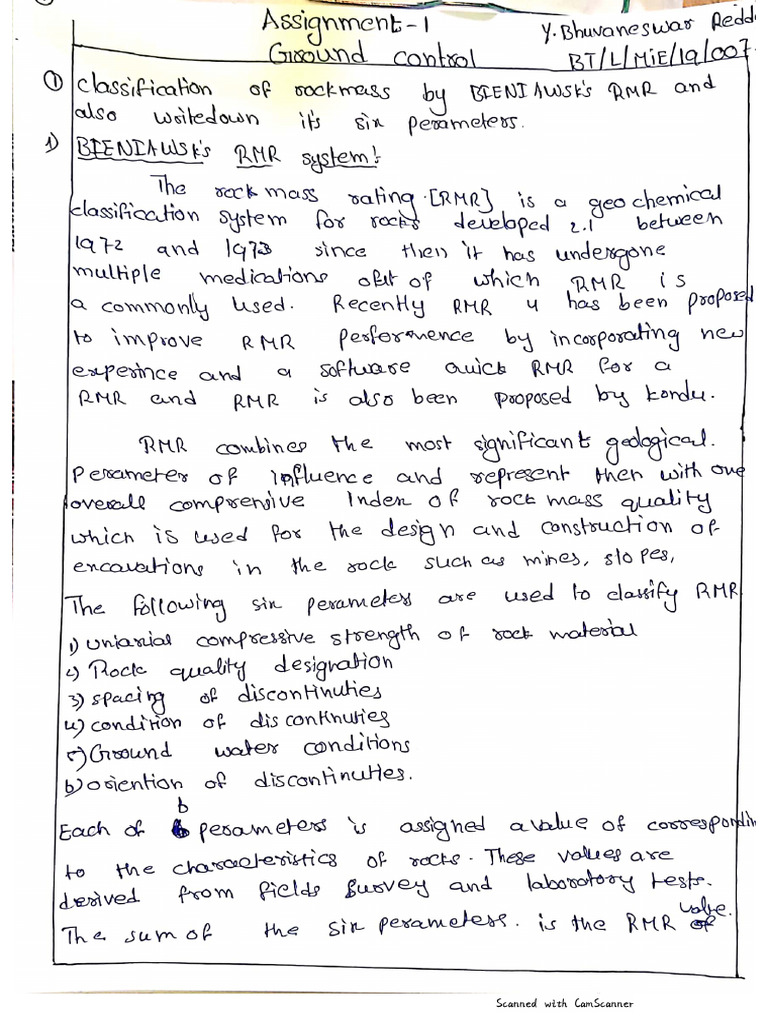 Assignment-1
Y. Bhuvaneswar Reddi
Ground control
BT/L/MiE/19/007.
① classification of rockmass by BIENIAWSK's RMR and
also writedown it's six perameters.
1) BIENIAWSK's RMR system!
The rock mass rating [RMR] is a geochemical
classification system for rocks developed 2.1 between
1972 and 1973 since then it has undergone
multiple medications of which RMR is
a commonly used. Recently RMR 4 has been proposed
to improve RMR performence by incorporating new
experince and a software quick RMR for a
RMR and RMR is also been proposed by kondu.
RMR combines the most significant geological.
Perameter of influence and represent then with one
overall comprensive Index of rock mass quality
which is used for the design and construction of
excavations in the rock such as mines, slopes,
The following six perameters are used to classify RMR
1) uniaxial compressive strength of rock material
2) Rock quality designation
3) spacing of discontinuties
4) condition of discontinuties
5) Ground water conditions
6) oriention of discontinuties.
Each of 6 perameters is assigned a value of correspondin
to the characteristics of rocks. These values are
derived from fields survey and laborotory tests.
The sum of the six perameters. is the RMR value.
Scanned with CamScanner